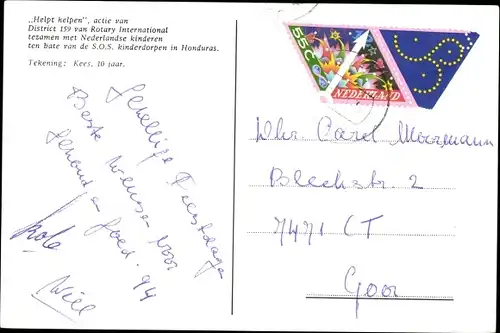 „Helpt helpen", actie van
District 159 van Rotary International
tezamen met Nederlandse kinderen
ten bate van de S.O.S. kinderdorpen in Honduras.
Tekening: Kees, 10 jaar.
Gezellige Feestdagen
Beste Wensen voor
Gezond en Goed. 94
Wiel
55c
NEDERLAND
Dhr. Carel Moormann
Blechstr. 2
7471 CT
Goor